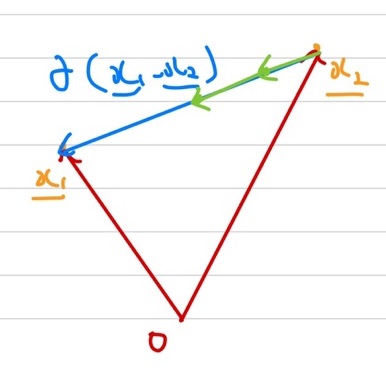 λ(x₁ - x₂)
x₂
x₁
O